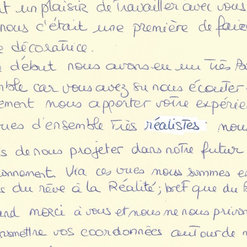 t un plaisir de travailler avec vous
nous c'était une première de faire
décoratrice.
début nous avons eu un très bo
mble car vous avez su nous écouter
ement nous apporter votre expérie
ues d'ensemble très réalistes nou
s de nous projeter dans notre futur
onnement. Via ces vues nous sommes
du rêve à la Réalité, bref que du b
and merci à vous et nous ne nous privon
ansmettre vos coordonnées autour de n